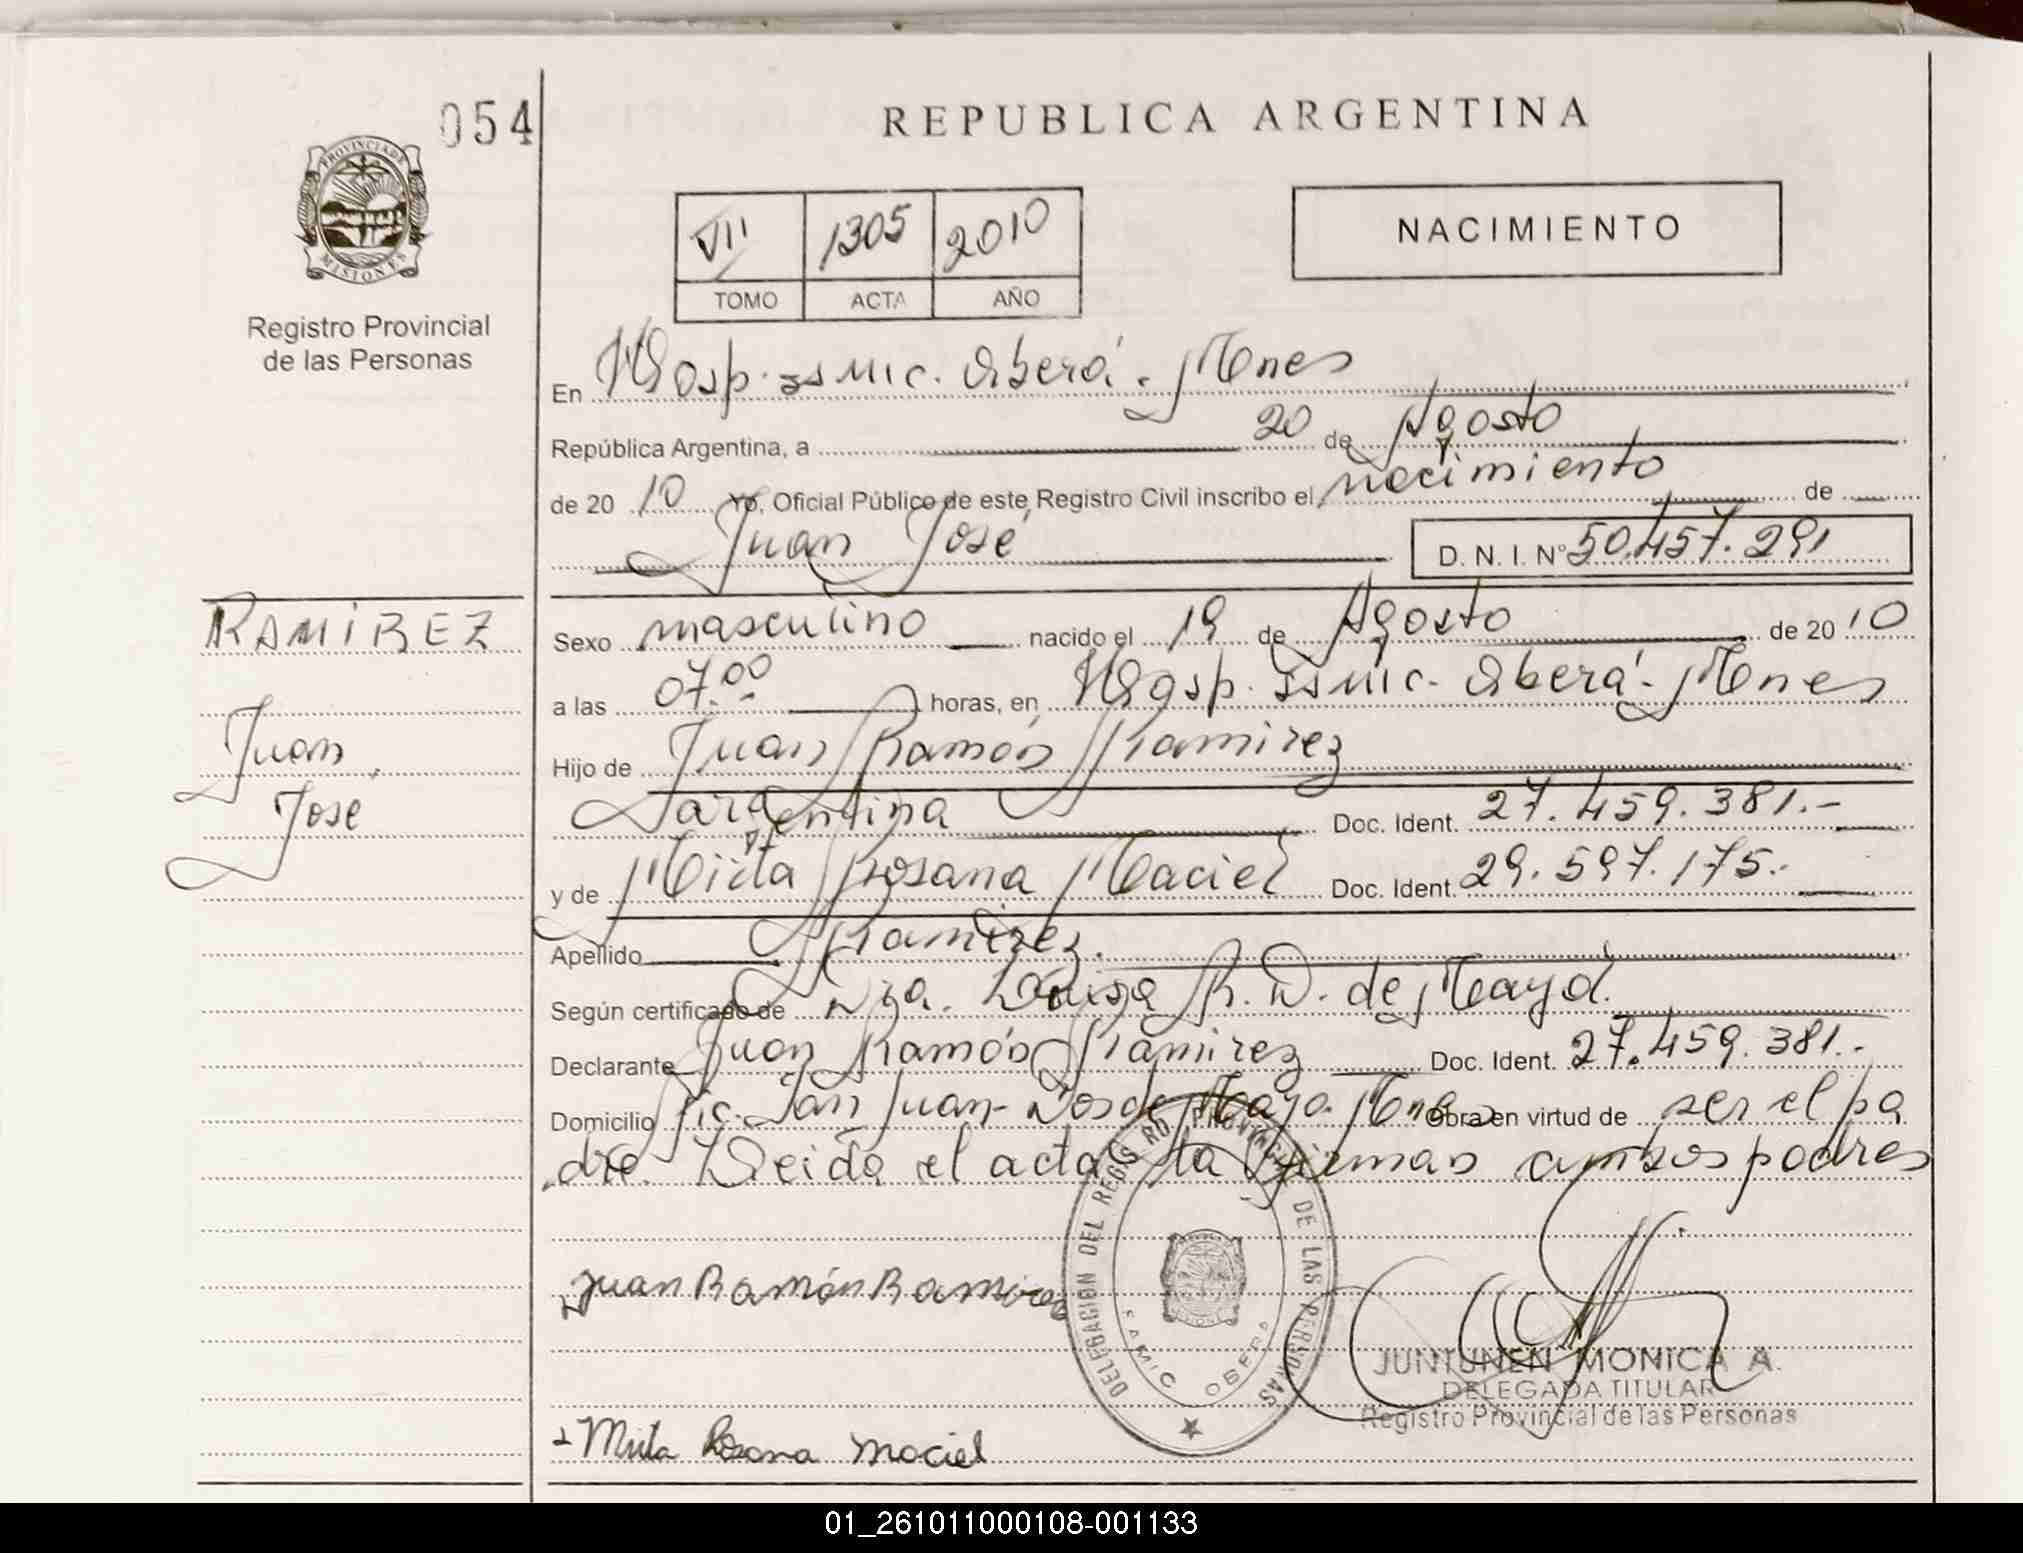 054
REPUBLICA ARGENTINA
PROVINCIA DE
MISIONES
Registro Provincial
de las Personas
VII 1305 2010
TOMO ACTA AÑO
NACIMIENTO
En Hosp. SSMIC. Oberá. Mnes
República Argentina, a 20 de Agosto
de 20 10 Yo, Oficial Público de este Registro Civil inscribo el nacimiento de
Juan José D. N. I. N° 50.457.291
RAMIREZ
Juan
José
Sexo masculino nacido el 19 de Agosto de 20 10
a las 07.00 horas, en Hosp. SSMIC. Oberá. Mnes
Hijo de Juan Ramón Ramirez
argentina Doc. Ident. 27.459.381.-
y de Mirta Rosana Maciel Doc. Ident. 29.597.175.-
Apellido Ramirez.
Según certificado de Dra. Luisa R. D. de Mayol.
Declarante Juan Ramón Ramirez Doc. Ident. 27.459.381.-
Domicilio Pic. San Juan - Dos de Mayo. Mnes Obra en virtud de ser el pa
dre. Leida el acta la firman ambos padres
Juan Ramón Ramirez
DELEGACION DEL REGISTRO PROVINCIAL DE LAS PERSONAS
SAMIC OBERA
JUNTUNEN MONICA A.
DELEGADA TITULAR
Registro Provincial de las Personas
Mirta Rosana Maciel
01_261011000108-001133